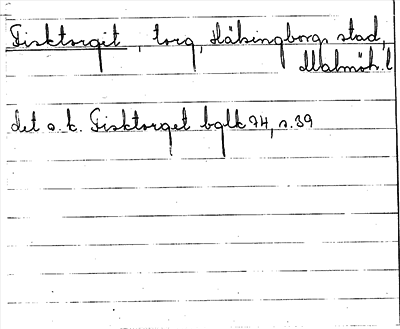 Fisktorgit, torg, Hälsingborgs stad,
Malmöh. l
det s. k. Fisktorget bglk 74, s. 39